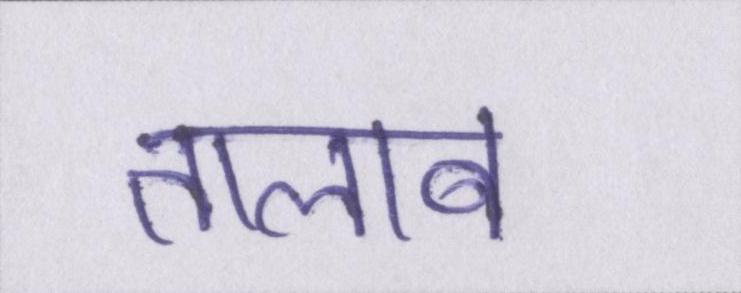 तालाब